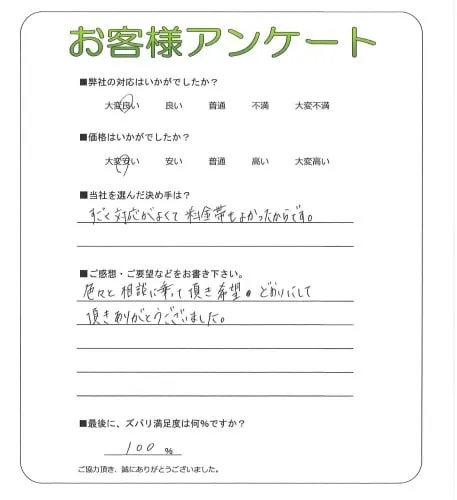 お客様アンケート
■弊社の対応はいかがでしたか？
大変良い 良い 普通 不満 大変不満
■価格はいかがでしたか？
大変安い 安い 普通 高い 大変高い
■当社を選んだ決め手は？
すごく対応がよくて料金帯もよかったからです。
■ご感想・ご要望などをお書き下さい。
色々と相談に乗って頂き希望のどおりにして
頂きありがとうございました。
■最後に、ズバリ満足度は何％ですか？
100 %
ご協力頂き、誠にありがとうございました。